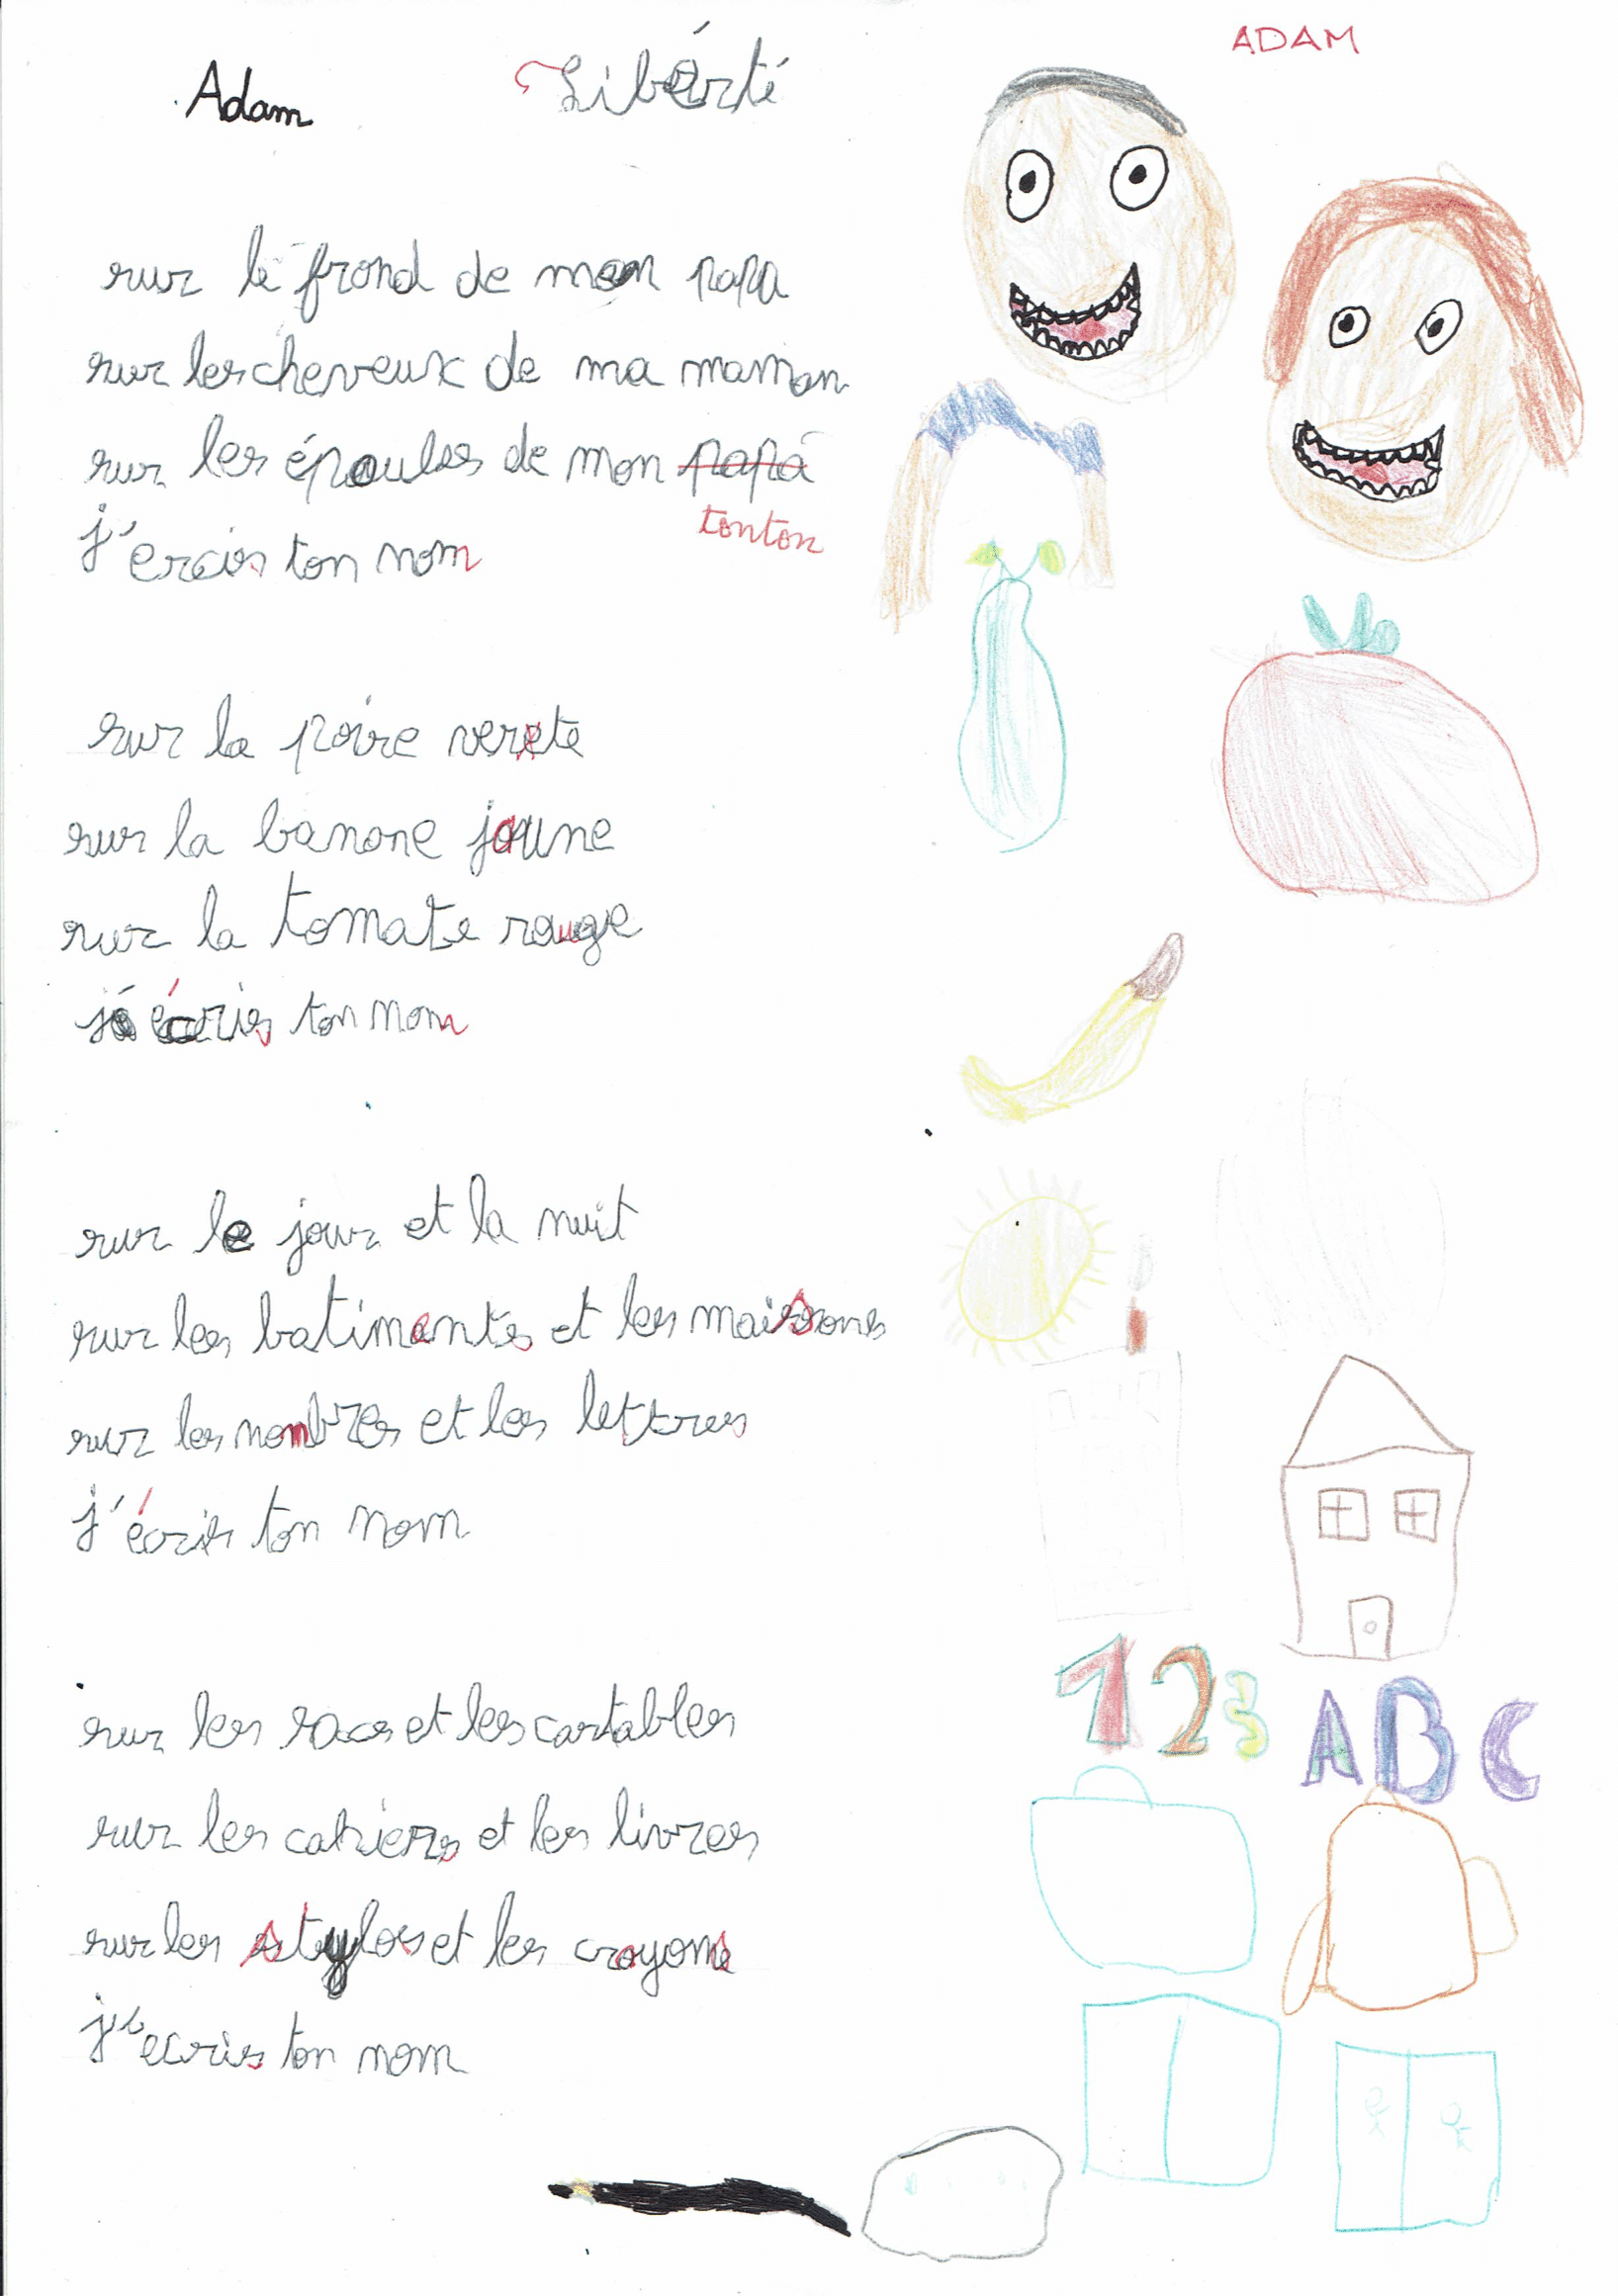 ADAM
Adam
Liberté
sur le frond de mon papa
sur les cheveux de ma maman
sur les épaules de mon papa
tonton
j'ercis ton nom
sur la poire verte
sur la banane jaune
sur la tomate rouge
j'écris ton nom
sur le jour et la nuit
sur les batiments et les maisons
sur les nombres et les lettres
j'écris ton nom
sur les sacs et les cartables
sur les cahiers et les livres
sur les stylos et les crayons
j'ecris ton nom
123
ABC